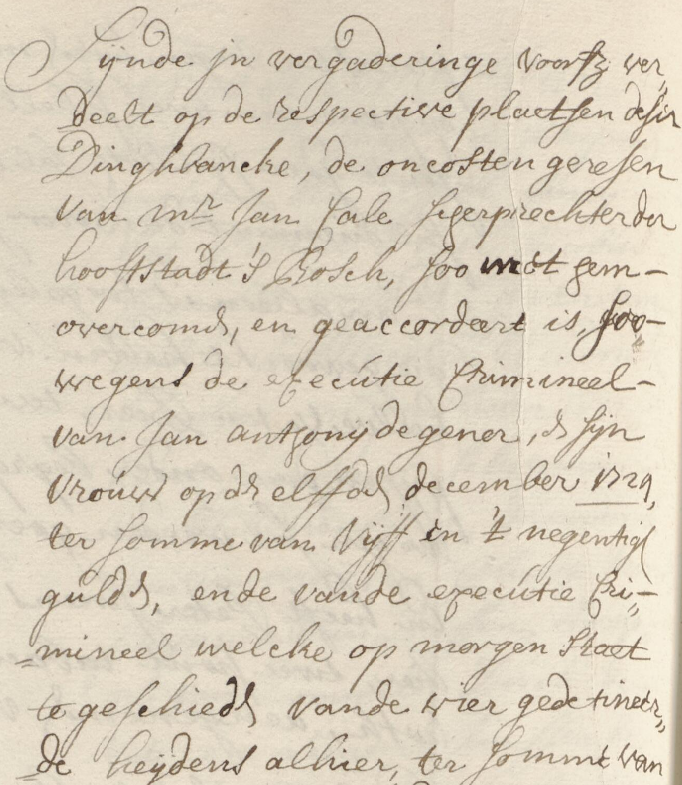 Sijnde in vergaderinge voorsz ver„
deelt op de respective plaetsen deser
Dinghbancke, de oncosten geresen
van mr. Jan Cale scherprechter der
hooftstadt 's Bosch, soo met hem -
overcomen, en geaccordeert is, soo -
wegens de executie Crimineel -
van Jan anthonij de gener, en sijn
vrouw op den elffden december 1724,
ter somme van Vijff en 't negentigh
gulden, ende vande executie Cri„
„mineel welcke op morgen staet
te geschieden vande vier gedetineer„
„de heijdens alhier, ter somme van